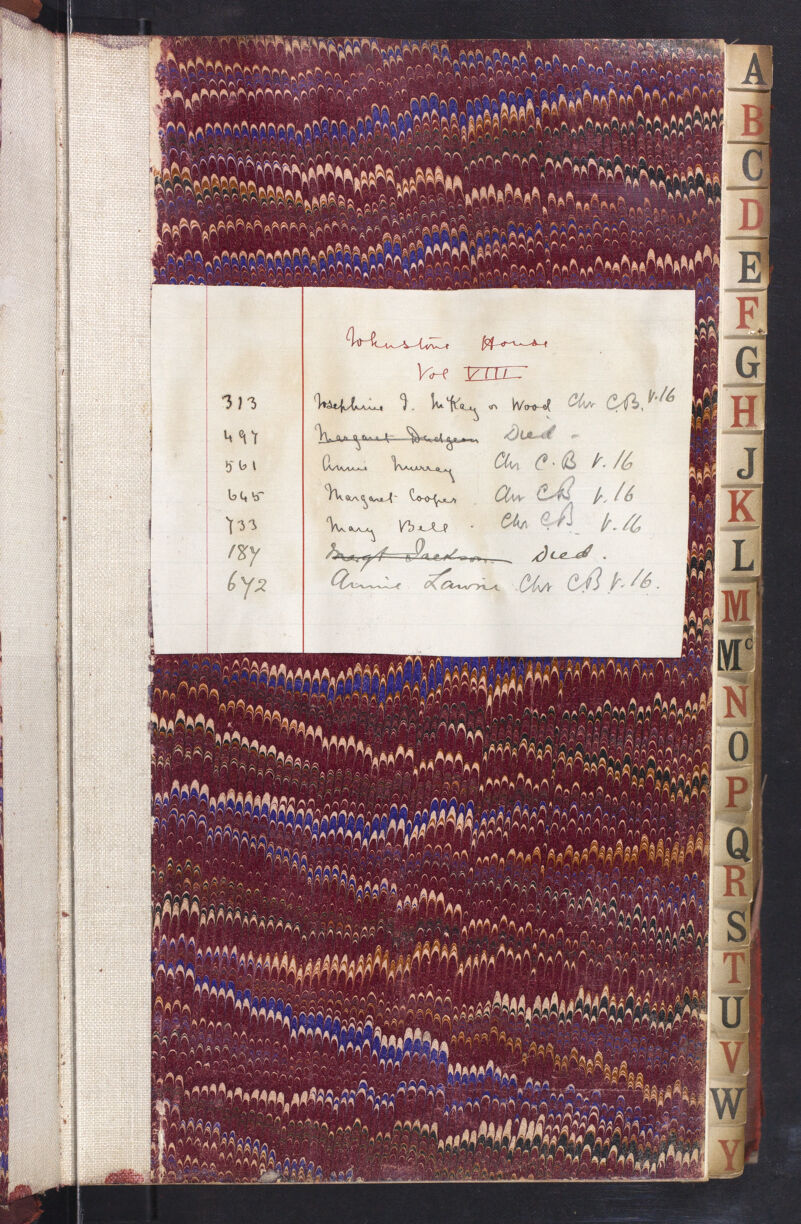 Johnstone House
Vol VIII
313 Josephine I. McKay or Wood Chr C.B. V.16
497 Margaret Dudgeon Died -
561 Annie Murray Chr C.B V.16
645 Margaret Cooper Chr CB V.16
733 Mary Bell . Chr CB V.16
187 Margt Jackson Died .
672 Annie Lawrie Chr CB V.16.
A
B
C
D
E
F
G
H
J
K
L
M
Mc
N
O
P
Q
R
S
T
U
V
W
Y